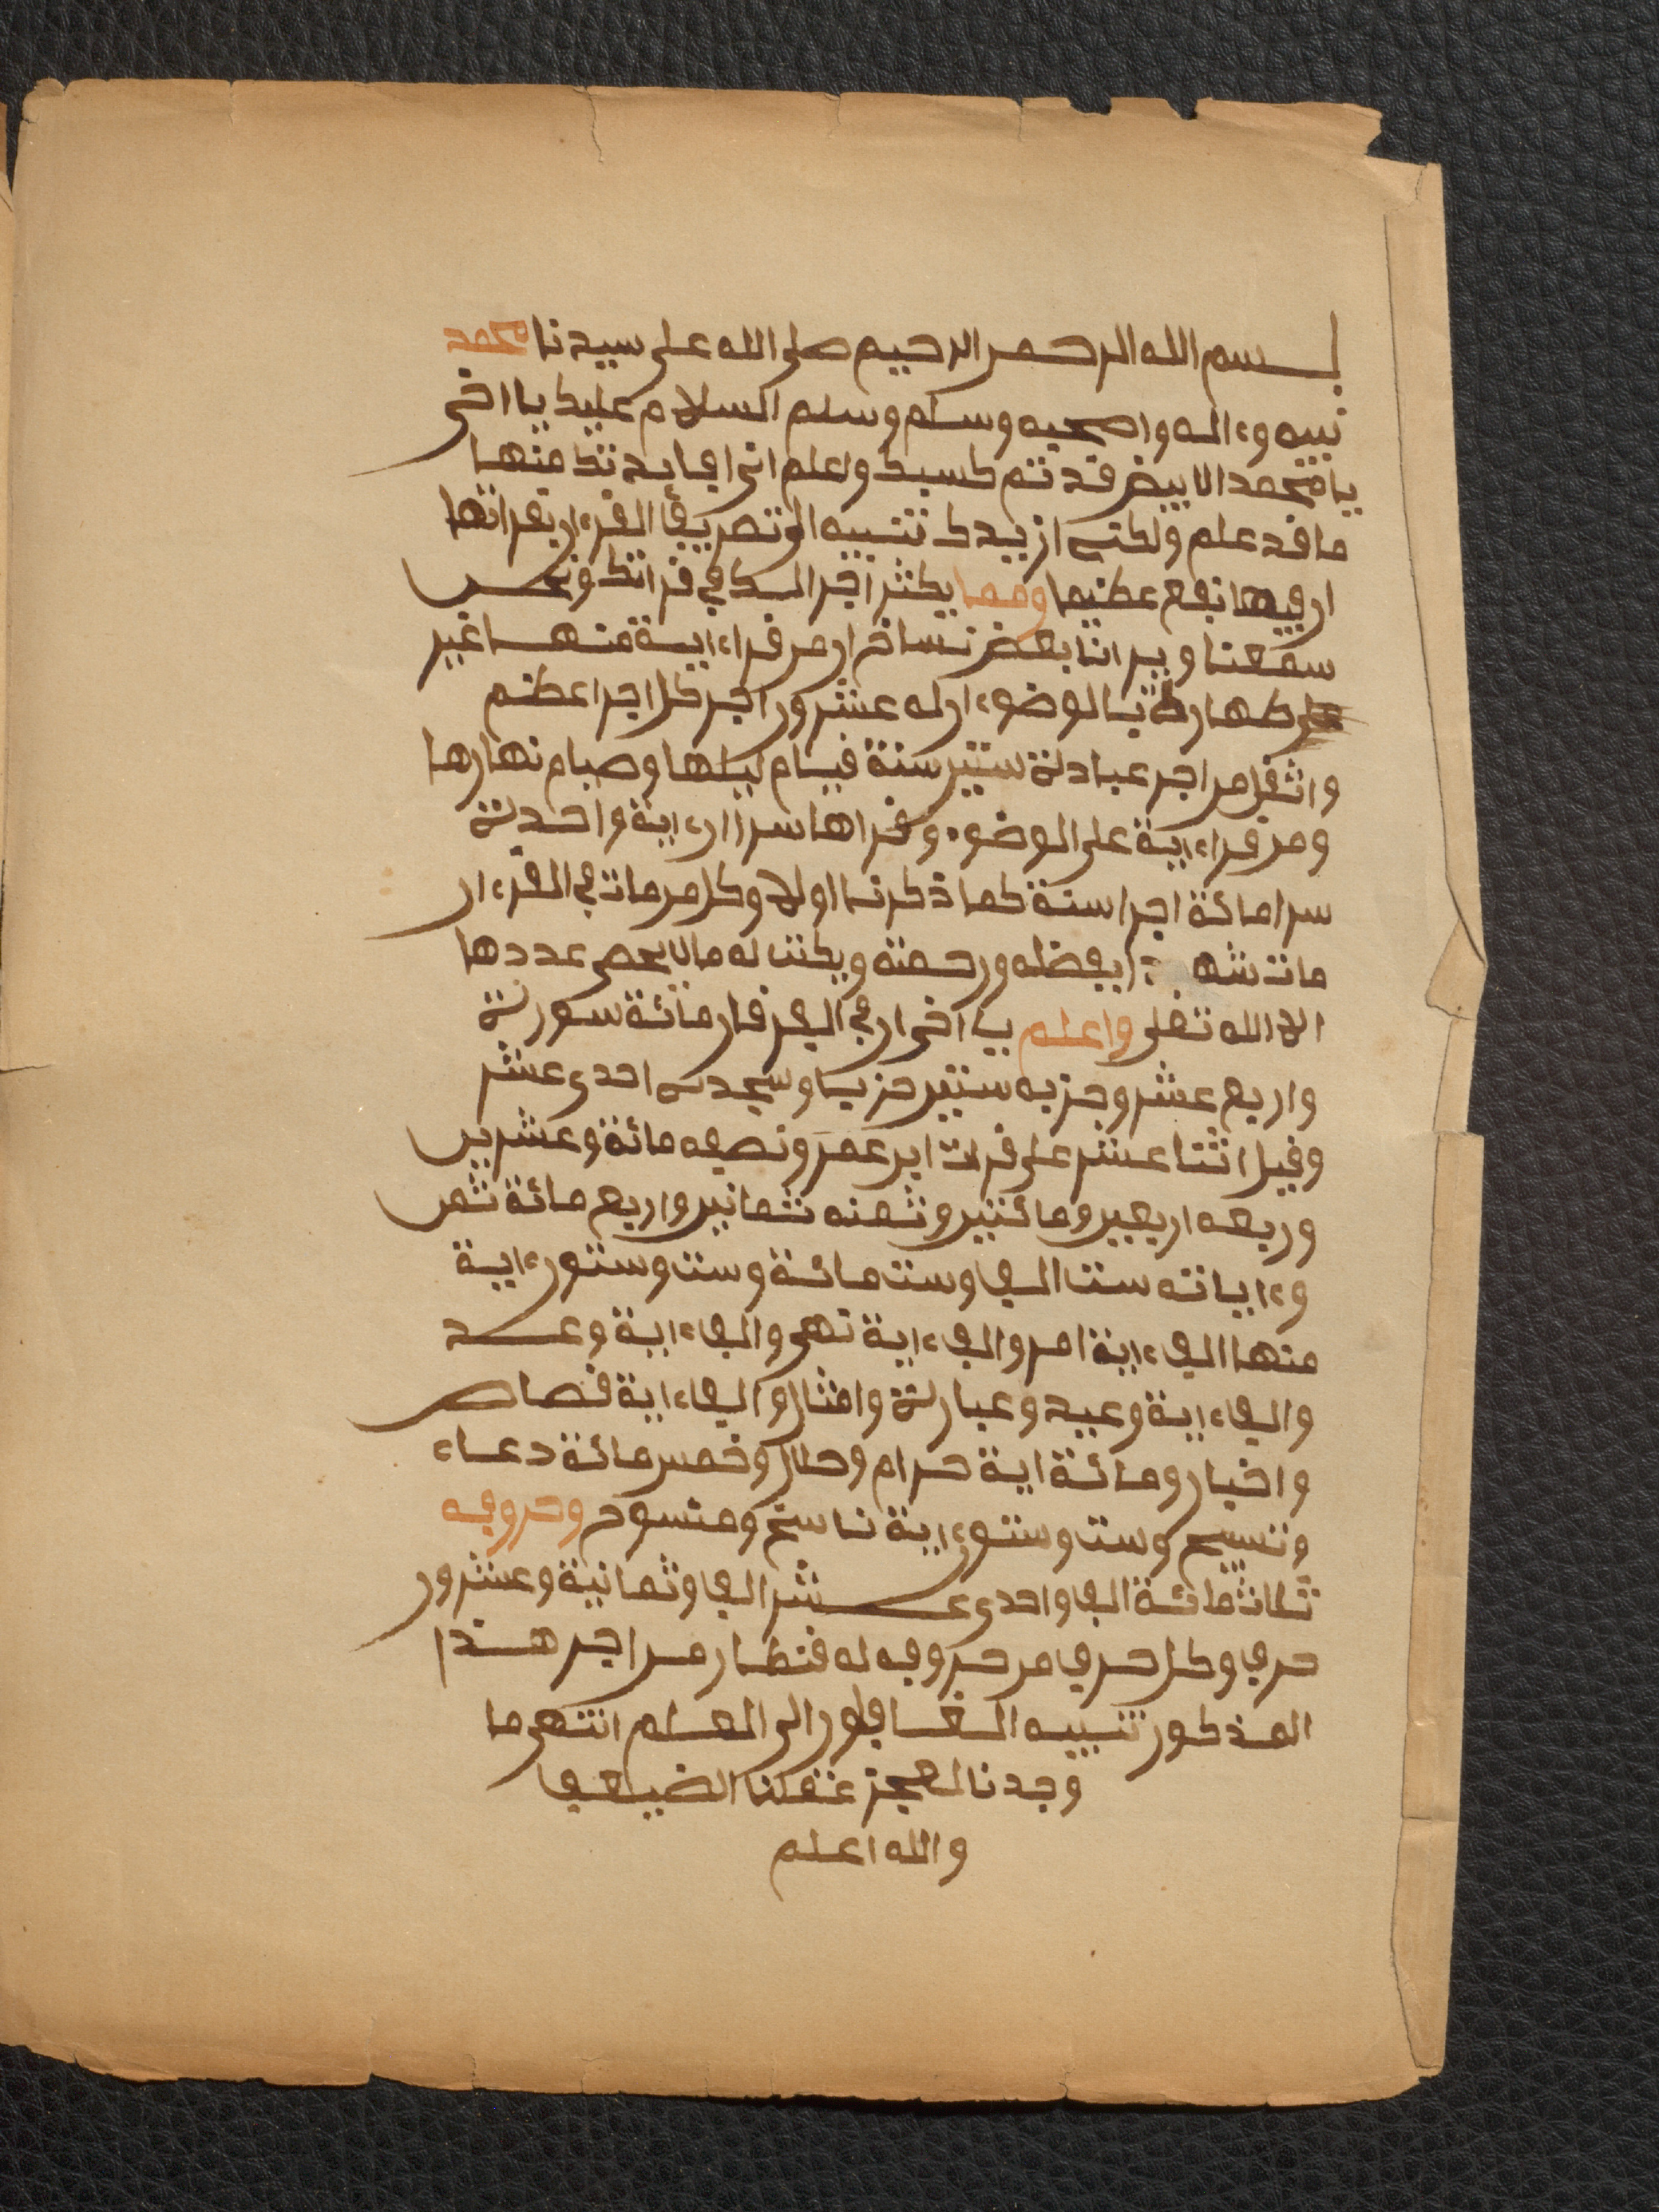 بسم الله الرحمن الرحيم صلى الله على سيدنا محمد
نبيه وءاله واصحبه وسلم وسلم السلام عليك يا اخى
يا محمد الابيض قد تم كسبك ولعلم انى افايدتك منها
ما قد علم ولكنه ازيدك تنبيه الى تصريف القرءان بقرانها
ان فيها نفع عظيما ومما يكثر اجر الك في قرانك ونحن
سمعنا وبرانا بعض نساخ ان من قراءاية منها غير
على طهارة بالوضوء ان له عشرون اجر كل اجر اعظم
واثقل من اجر عبادة ستين سنة قيام ليلها وصيام نهارها
ومن قراءاية على الوضوء وقراها سرا ان ءاية واحدة
سرا مائة اجرا سنة كما ذكرنا اولا وكل من مات في القرءان
مات شهيدا بفضله ورحمته ويكتب له مالا يحصى عددها
الا الله تعلى واعلم يا اخى ان في الفرقان مائة سورة
واربع عشر وحزبه ستين حزبا وسجدته احدى عشر
وقيل اثنتا عشر على قرات ابن عمر ونصفه مائة وعشرين
وربعه اربعين ومائتين وثمنه ثمانين واربع مائة ثمن
وءاياته ست الف وست مائة وست وستون ءاية
منها الف ءاية امر والف ءاية نهى والف ءاية وعد
والف ءاية وعيد وعبارة وامثال والف ءاية قصاص
واخبار ومائة اية حرام وحلال وخمس مائة دعاء
وتسبيح وست وستون ءاية ناسخ ومنسوخ وحروفه
ثلاثمائة الف واحدى عشر الف وثمانية وعشرون
حرف وكل حرف من حروفه له قنطار من اجر هذا
المذكور تنبيه الغافلون الى المعلم انتهى ما
وجدنا لعجز عقلنا الضيعف
والله اعلم